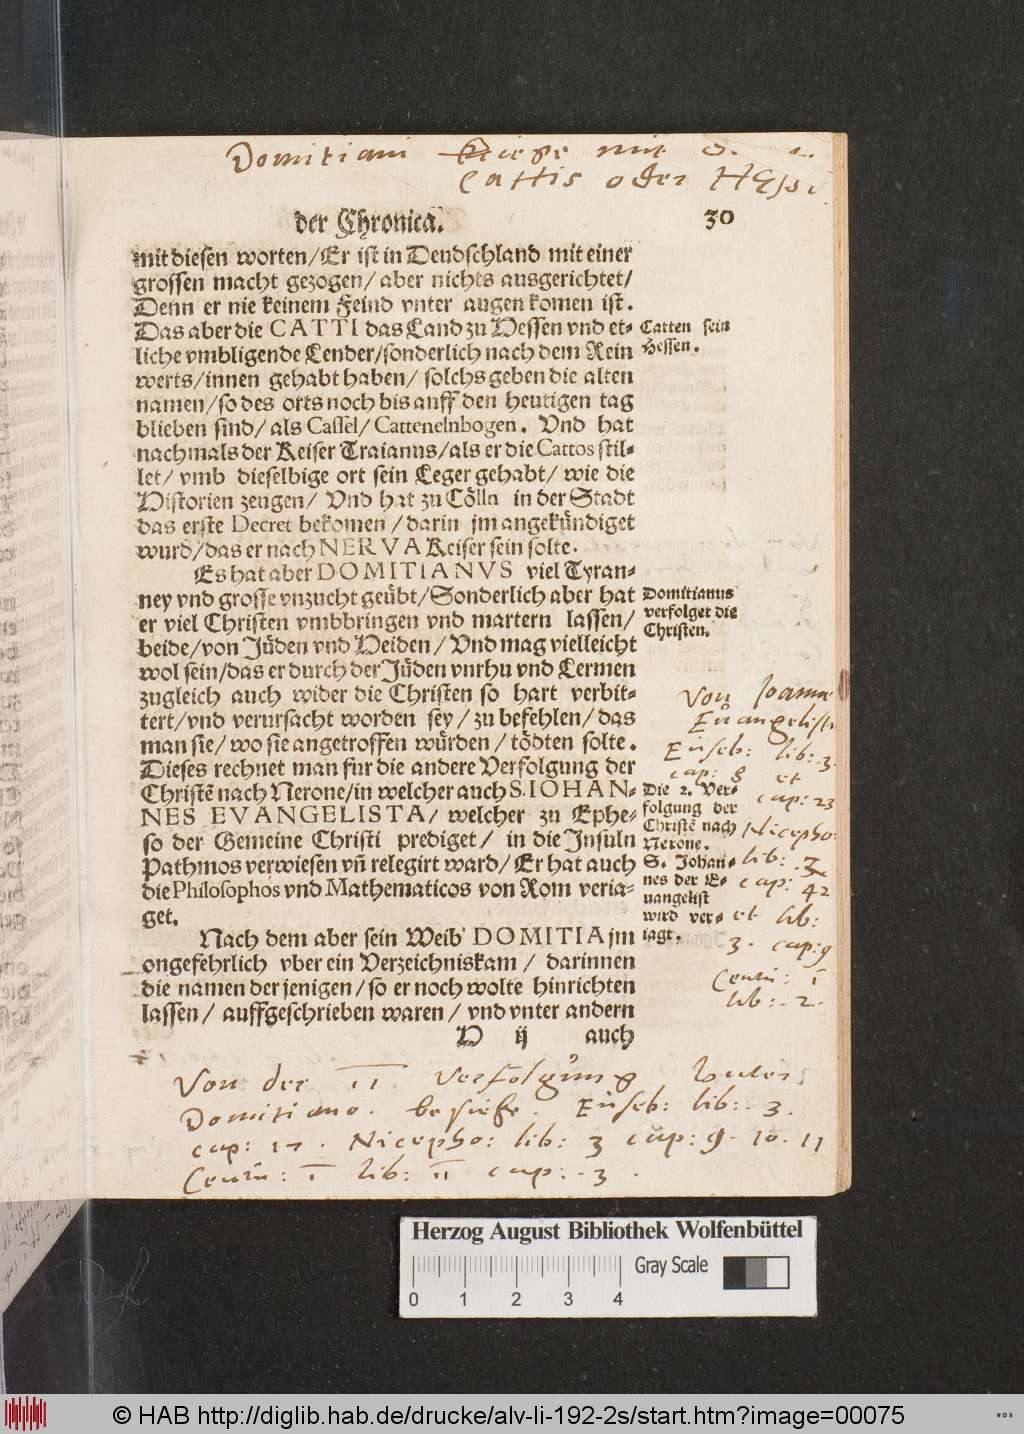 Domitiani Kriege mit
Cattis oder Hessi
der Chronica. 30
mit diesen worten/ Er ist in Deudschland mit einer
grossen macht gezogen/ aber nichts ausgerichtet/
Denn er nie keinem Feind vnter augen komen ist.
Das aber die CATTI das Land zu Hessen vnd et-
liche vmbligende Lender/sonderlich nach dem Rein
werts/innen gehabt haben/ solchs geben die alten
namen/so des orts noch bis auff den heutigen tag
blieben sind/ als Cassel/ Cattenelnbogen. Vnd hat
nachmals der Keiser Traianus/als er die Cattos stil-
let/ vmb dieselbige ort sein Leger gehabt/ wie die
Historien zeugen/ Vnd hat zu Cölln in der Stadt
das erste Decret bekomen/darin jm angekündiget
wurd/das er nach NERVA Keiser sein solte.
Es hat aber DOMITIANVS viel Tyran-
ney vnd grosse vnzucht geübt/Sonderlich aber hat
er viel Christen vmbbringen vnd martern lassen/
beide/von Jüden vnd Heiden/ Vnd mag vielleicht
wol sein/das er durch der Jüden vnrhu vnd Lermen
zugleich auch wider die Christen so hart verbit-
tert/vnd verursacht worden sey/ zu befehlen/ das
man sie/ wo sie angetroffen würden/ tödten solte.
Dieses rechnet man fur die andere Verfolgung der
Christē nach Nerone/in welcher auch S. IOHAN-
NES EVANGELISTA/ welcher zu Ephe-
so der Gemeine Christi prediget/ in die Jnsuln
Pathmos verwiesen vñ relegirt ward/ Er hat auch
die Philosophos vnd Mathematicos von Rom veria-
get.
Nach dem aber sein Weib DOMITIA jm
ongefehrlich vber ein Verzeichnis kam/ darinnen
die namen der jenigen/so er noch wolte hinrichten
lassen/ auffgeschrieben waren/ vnd vnter andern
H ij auch
Catten sein
Hessen.
Domitianus
verfolget die
Christen.
Von Joanne
Euangelist
Euseb: lib: 3.
cap: 8 et
cap: 23
Die 2. Ver-
folgung der
Christē nach
Nerone.
S. Johan-
nes der E-
uangelist
wird ver-
iagt.
Nicepho:
lib:
cap: 42
et lib:
3. cap: 9
Centu: I
lib: 2.
Von der II verfolgung
Domitiano. besiehe. Euseb: lib: 3.
cap: 17. Nicepho: lib: 3 cap: 9. 10. 11
Centu: I lib: II cap: 3.
Herzog August Bibliothek Wolfenbüttel
Gray Scale
0 1 2 3 4
© HAB http://diglib.hab.de/drucke/alv-li-192-2s/start.htm?image=00075